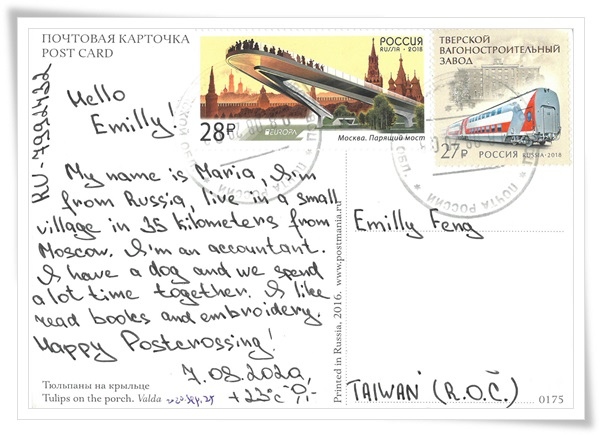 ПОЧТОВАЯ КАРТОЧКА
POST CARD
RU-7992432
Hello
Emilly!
My name is Maria, I'm
from Russia, live in a small
village in 35 kilometers from
Moscow. I'm an accountant.
I have a dog and we spend
a lot time together. I like
read books and embroidery.
Happy Postcrossing!
7.08.2020,
+23°C
Тюльпаны на крыльце
Tulips on the porch. Valda
РОССИЯ
RUSSIA · 2018
28₽
EUROPA
Москва. Парящий мост
ТВЕРСКОЙ
ВАГОНОСТРОИТЕЛЬНЫЙ
ЗАВОД
27₽ РОССИЯ RUSSIA · 2018
ПОЧТА РОССИИ
ПОЧТА РОССИИ
Printed in Russia, 2016. www.postmania.ru
Emilly Feng
TAIWAN (R.O.Č.)
0175